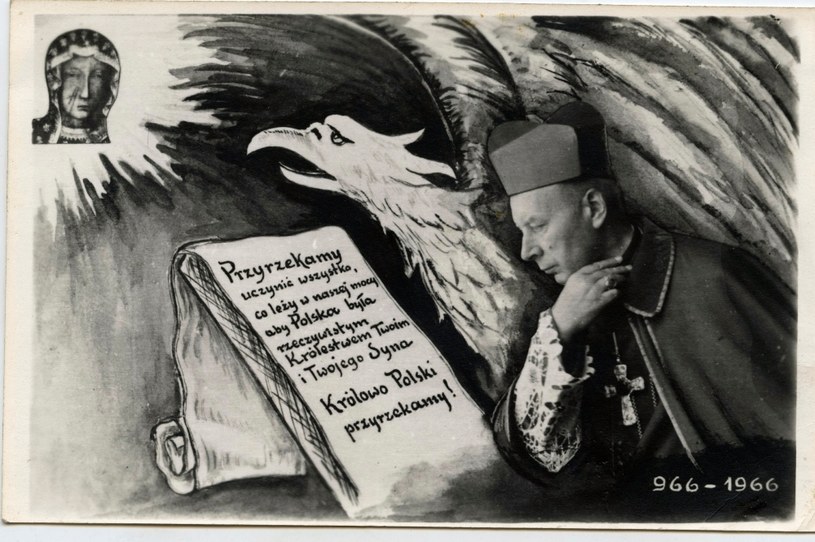 Przyrzekamy
uczynić wszystko,
co leży w naszej mocy
aby Polska była
rzeczywistym
Królestwem Twoim
i Twojego Syna
Królowo Polski
przyrzekamy!
966-1966